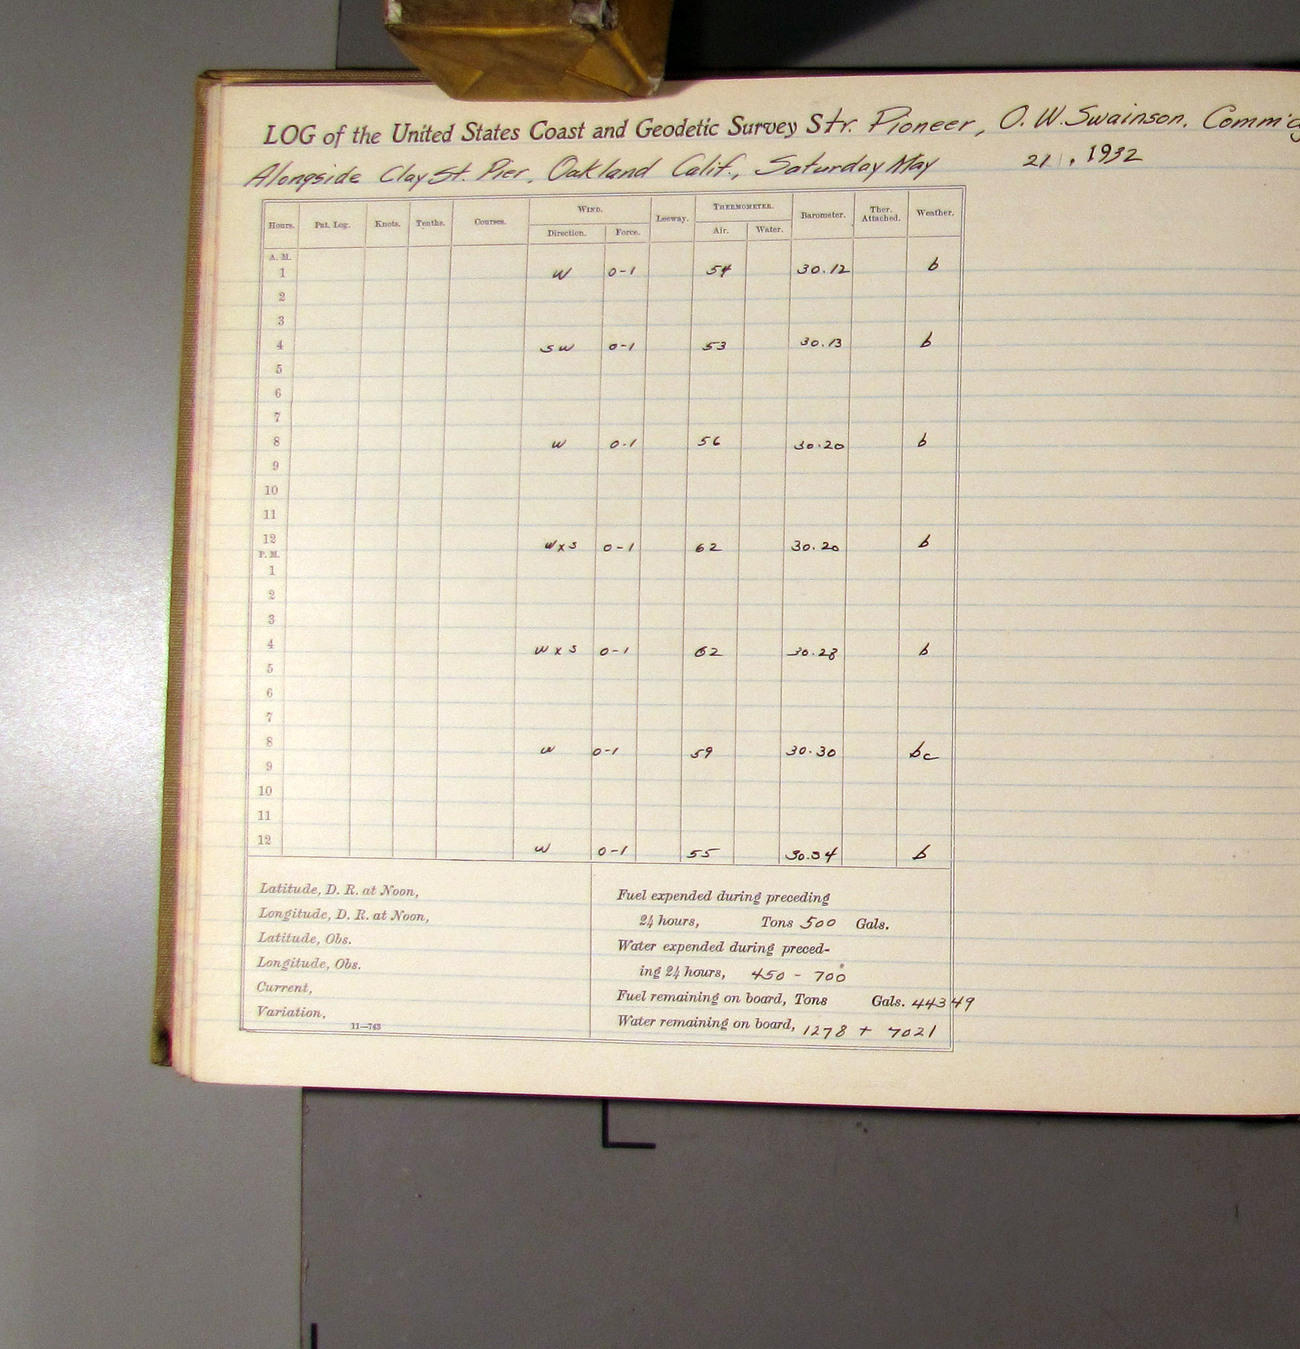 LOG of the United States Coast and Geodetic Survey Str. Pioneer, O. W. Swainson, Comm'd'g
Alongside Clay St. Pier, Oakland Calif., Saturday May 21, 1932
Hours. Pat. Log. Knots. Tenths. Courses. WIND. Leeway. THERMOMETER. Barometer. Ther. Attached. Weather.
Direction. Force. Air. Water.
A. M.
1 W 0-1 54 30.12 b
2
3
4 SW 0-1 53 30.13 b
5
6
7
8 W 0-1 56 30.20 b
9
10
11
12 WxS 0-1 62 30.20 b
P. M.
1
2
3
4 WxS 0-1 62 30.28 b
5
6
7
8 W 0-1 59 30.30 bc
9
10
11
12 W 0-1 55 30.34 b
Latitude, D. R. at Noon,
Longitude, D. R. at Noon,
Latitude, Obs.
Longitude, Obs.
Current,
Variation,
11—763
Fuel expended during preceding
24 hours, Tons 500 Gals.
Water expended during preced-
ing 24 hours, 450 - 700
Fuel remaining on board, Tons Gals. 44349
Water remaining on board, 1278 + 7021